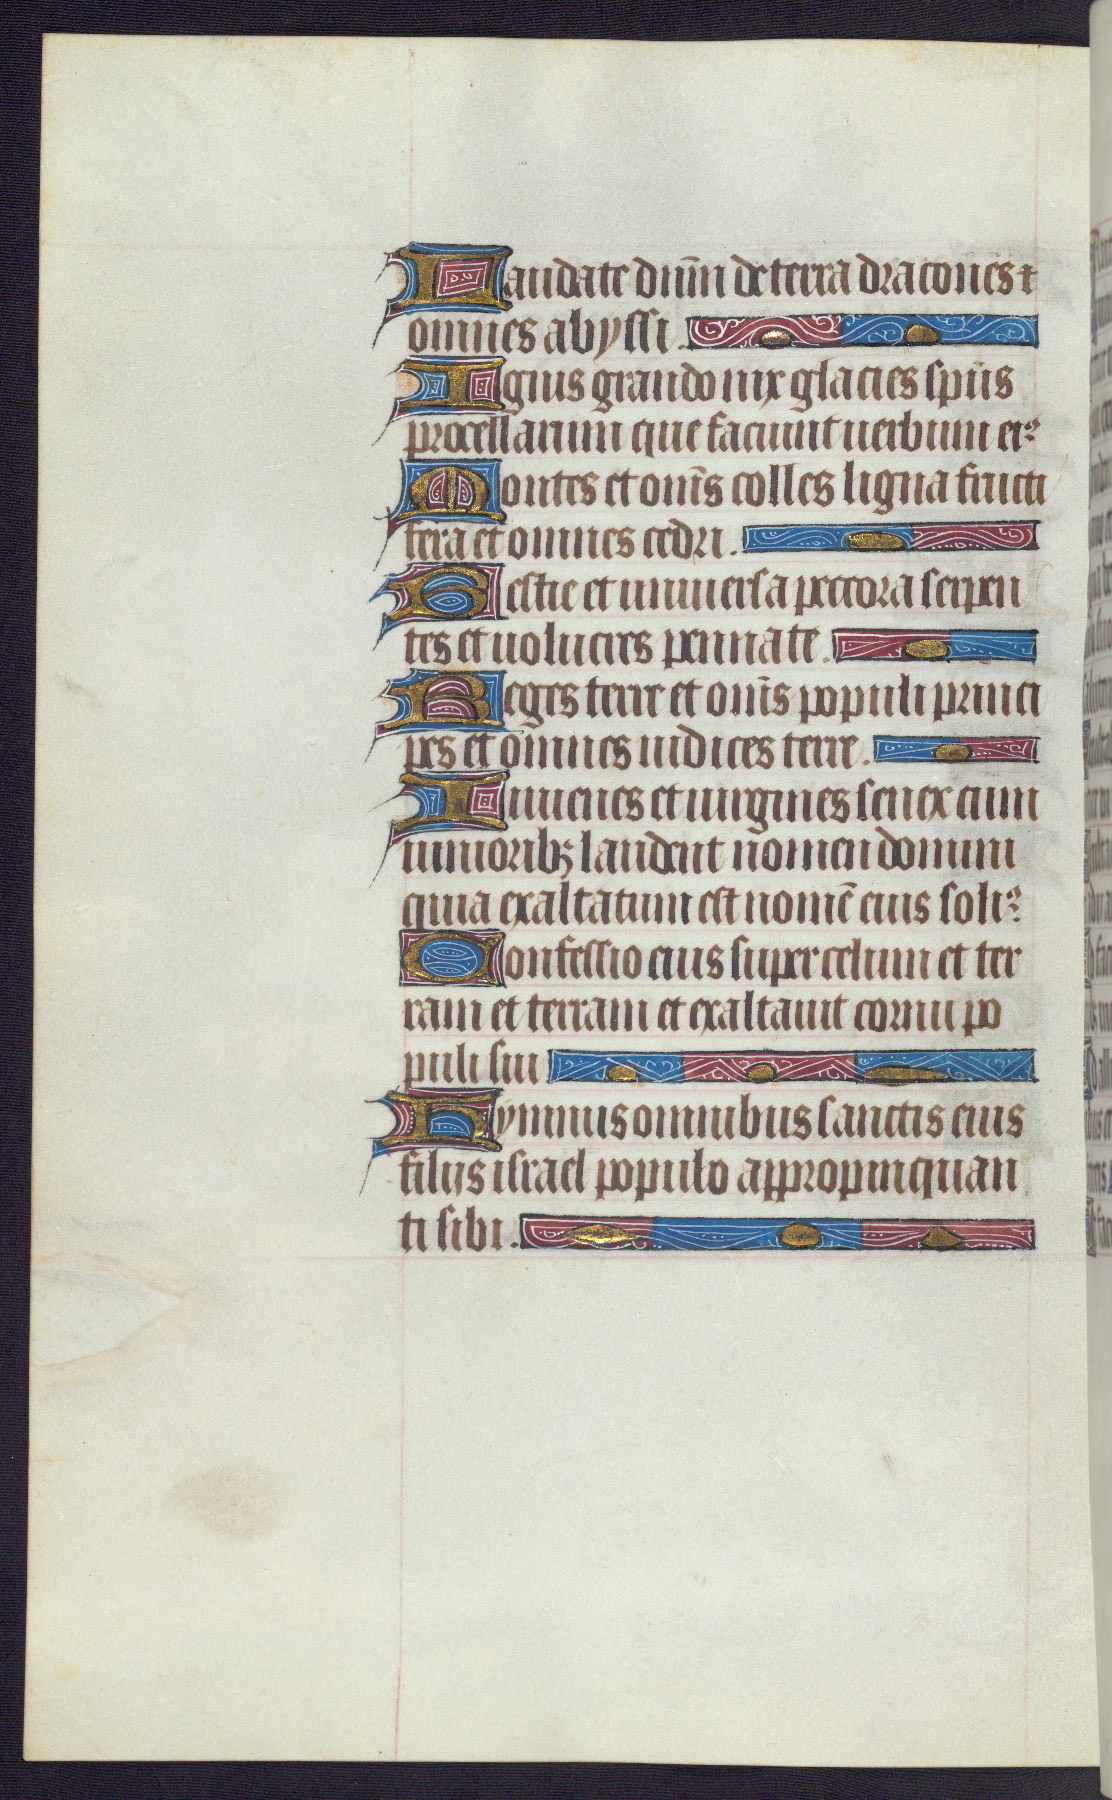 Laudate dnm̄ de terra dracones ⁊
omnes abyssi.
Ignis grando nix glacies spūs
procellarum que faciunt uerbum eiꝰ
Montes et om̄s colles ligna fructi
fera et omnes cedri.
Bestie et uniuersa peccora serpen
tes et uolucres pennate.
Reges terre et om̄s populi princi
pes et omnes iudices terre.
Iuuenes et uirgines senex cum
iunioribꝫ laudent nomen domini
quia exaltatum est nomē eius soliꝰ
Confessio eius super celum et ter
ram et terram et exaltauit cornu po
puli sui
Hymnus omnibus sanctis eius
filijs israel populo appropinquan
ti sibi.